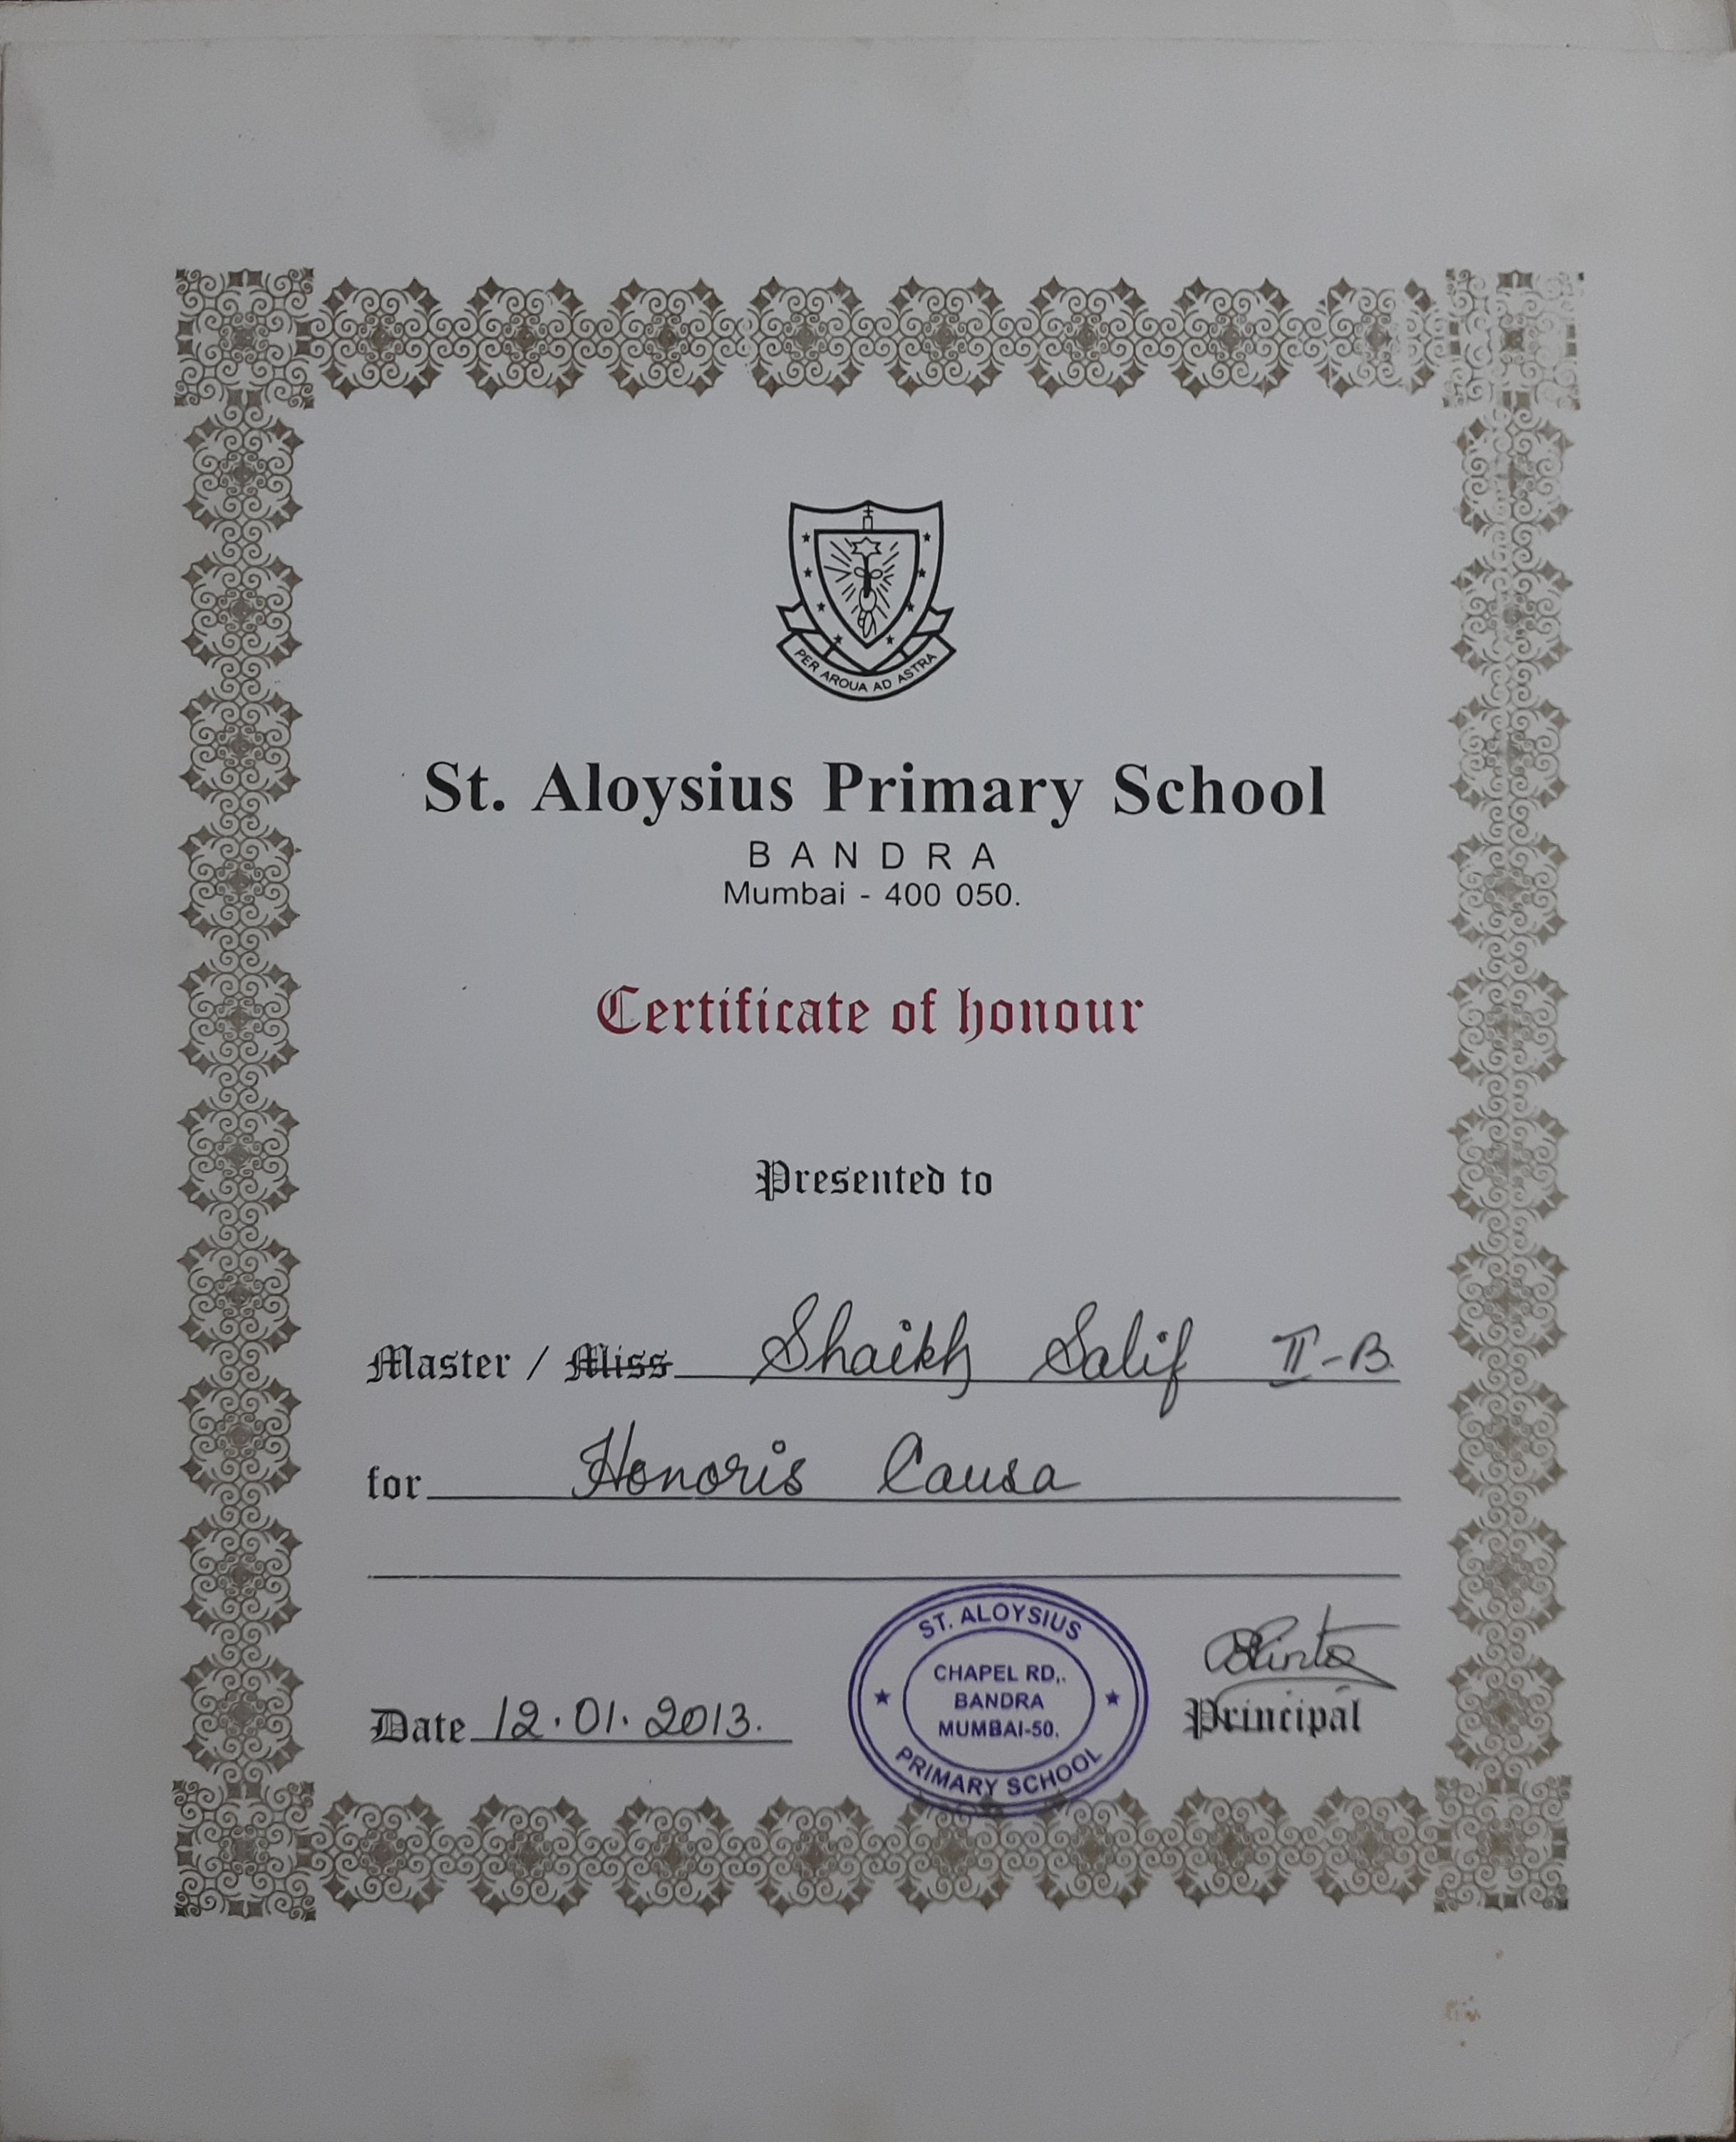 PER AROUA AD ASTRA
St. Aloysius Primary School
BANDRA
Mumbai - 400 050.
Certificate of honour
Presented to
Master / Miss Shaikh Salif II-B.
for Honoris Causa
ST. ALOYSIUS
CHAPEL RD,.
BANDRA
MUMBAI-50.
PRIMARY SCHOOL
Date 12.01.2013.
Principal